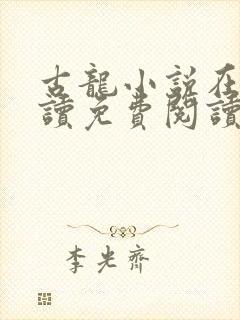 古龍小說在
讀免費閱讀
李光齊